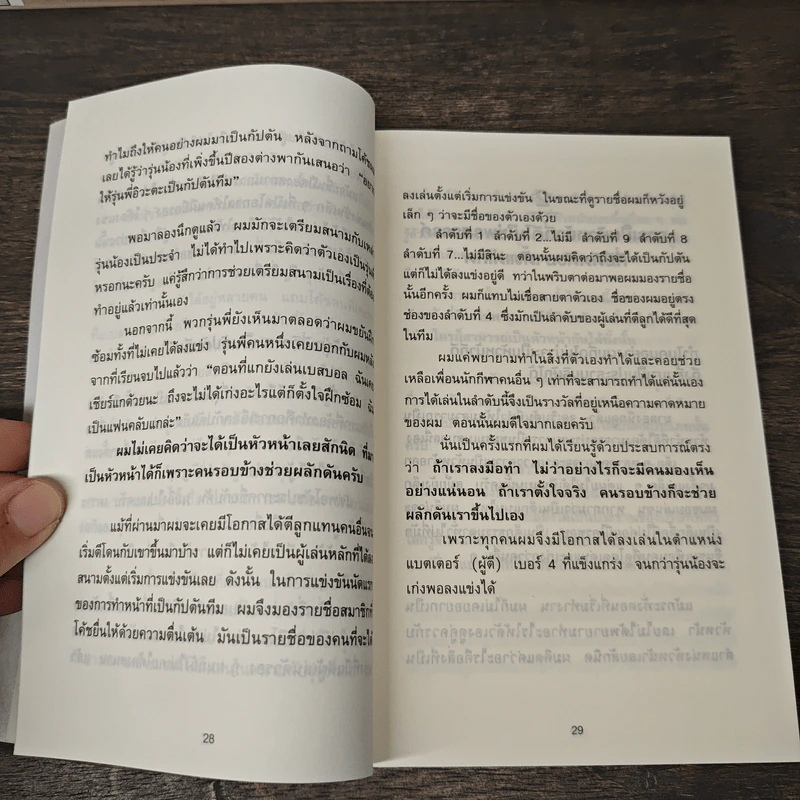 ทำไมถึงให้คนอย่างผมมาเป็นกัปตัน หลังจากถามโค้ช
เลยได้รู้ว่ารุ่นน้องที่เพิ่งขึ้นปีสองต่างพากันเสนอว่า
ให้รุ่นพี่อิวะตะเป็นกัปตันทีม”
พอมาลองนึกดูแล้ว ผมมักจะเตรียมสนามกับ
รุ่นน้องเป็นประจำ ไม่ได้ทำไปเพราะคิดว่าตัวเองเป็น
หรอกนะครับ แค่รู้สึกว่าการช่วยเตรียมสนามเป็นเรื่องที่
ทำอยู่แล้วเท่านั้นเอง
นอกจากนี้ พวกรุ่นพี่ยังเห็นมาตลอดว่าผมขยัน
ซ้อมทั้งที่ไม่เคยได้ลงแข่ง รุ่นพี่คนหนึ่งเคยบอกกับผม
จากที่เรียนจบไปแล้วว่า “ตอนที่แกยังเล่นเบสบอล ฉัน
เชียร์แกด้วยนะ ถึงจะไม่ได้เก่งอะไรแต่ก็ตั้งใจฝึกซ้อม
เป็นแฟนคลับแกล่ะ”
ผมไม่เคยคิดว่าจะได้เป็นหัวหน้าเลยสักนิด
เป็นหัวหน้าได้ก็เพราะคนรอบข้างช่วยผลักดันครับ
แม้ที่ผ่านมาผมจะเคยมีโอกาสได้ตีลูกแทนคนอื่น
เริ่มตีโดนกับเขาขึ้นมาบ้าง แต่ก็ไม่เคยเป็นผู้เล่นหลักที่ได้
สนามตั้งแต่เริ่มการแข่งขันเลย ดังนั้น ในการแข่งขันนัดแรก
ของการทำหน้าที่เป็นกัปตันทีม ผมจึงมองรายชื่อสมาชิกที่
โค้ชยื่นให้ด้วยความตื่นเต้น มันเป็นรายชื่อของคนที่จะได้
28
ลงเล่นตั้งแต่เริ่มการแข่งขัน ในขณะที่ดูรายชื่อผมก็หวังอยู่
เล็ก ๆ ว่าจะมีชื่อของตัวเองด้วย
ลำดับที่ 1 ลำดับที่ 2...ไม่มี ลำดับที่ 9 ลำดับที่ 8
ลำดับที่ 7...ไม่มีสินะ ตอนนั้นผมคิดว่าถึงจะได้เป็นกัปตัน
แต่ก็ไม่ได้ลงแข่งอยู่ดี ทว่าในพริบตาต่อมาพอผมมองรายชื่อ
นั้นอีกครั้ง ผมก็แทบไม่เชื่อสายตาตัวเอง ชื่อของผมอยู่ตรง
ช่องของลำดับที่ 4 ซึ่งมักเป็นลำดับของผู้เล่นที่ตีลูกได้ดีที่สุด
ในทีม
ผมแค่พยายามทำในสิ่งที่ตัวเองทำได้และคอยช่วย
เหลือเพื่อนนักกีฬาคนอื่น ๆ เท่าที่จะสามารถทำได้แค่นั้นเอง
การได้เล่นในลำดับนี้จึงเป็นรางวัลที่อยู่เหนือความคาดหมาย
ของผม ตอนนั้นผมดีใจมากเลยครับ
นั่นเป็นครั้งแรกที่ผมได้เรียนรู้ด้วยประสบการณ์ตรง
ว่า ถ้าเราลงมือทำ ไม่ว่าอย่างไรก็จะมีคนมองเห็น
อย่างแน่นอน ถ้าเราตั้งใจจริง คนรอบข้างก็จะช่วย
ผลักดันเราขึ้นไปเอง
เพราะทุกคนผมจึงมีโอกาสได้ลงเล่นในตำแหน่ง
แบตเตอร์ (ผู้ตี) เบอร์ 4 ที่แข็งแกร่ง จนกว่ารุ่นน้องจะ
เก่งพอลงแข่งได้
29